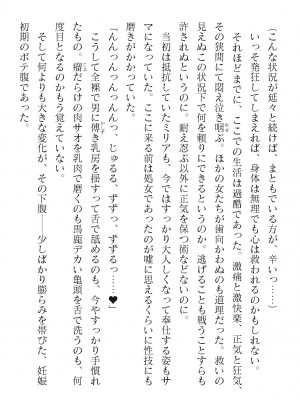 (こんな状況が延々と続けば、まともでいる方が、辛いっ……)
いっそ発狂してしまえれば、身体は無理でも心は救われるのかもしれない。
それほどまでに、ここでの生活は過酷であった。激痛と激快楽、正気と狂気、
その狭間にて悶え泣き咽ぶ。ほかの女たちが歯向かわぬのも道理だった。救いの
見えぬこの状況下で何を頼りにできるというのか。逃げることも戦うことすらも
許されぬというのに。耐え忍ぶ以外に正気を保つ術などないのに。
当初は抵抗していたミリアも、今ではすっかり大人しくなって奉仕する姿もサ
マになっていた。ここに来る前は処女であったのが嘘に思えるくらいに性技にも
磨きがかかっていた。
「んんっんっんんっ、じゅるる、ずずっ、ずずるっ……♥」
こうして全裸で男に傅き乳房を揺すって舌で舐めるのも、今やすっかり手慣れ
たもの。瘤だらけの肉サオを乳肉で磨くのも馬鹿デカい亀頭を舌で洗うのも、何
度目となるのかもう覚えていない。
そして何よりも大きな変化が、その下腹――少しばかり膨らみを帯びた、妊娠
初期のボテ腹であった。